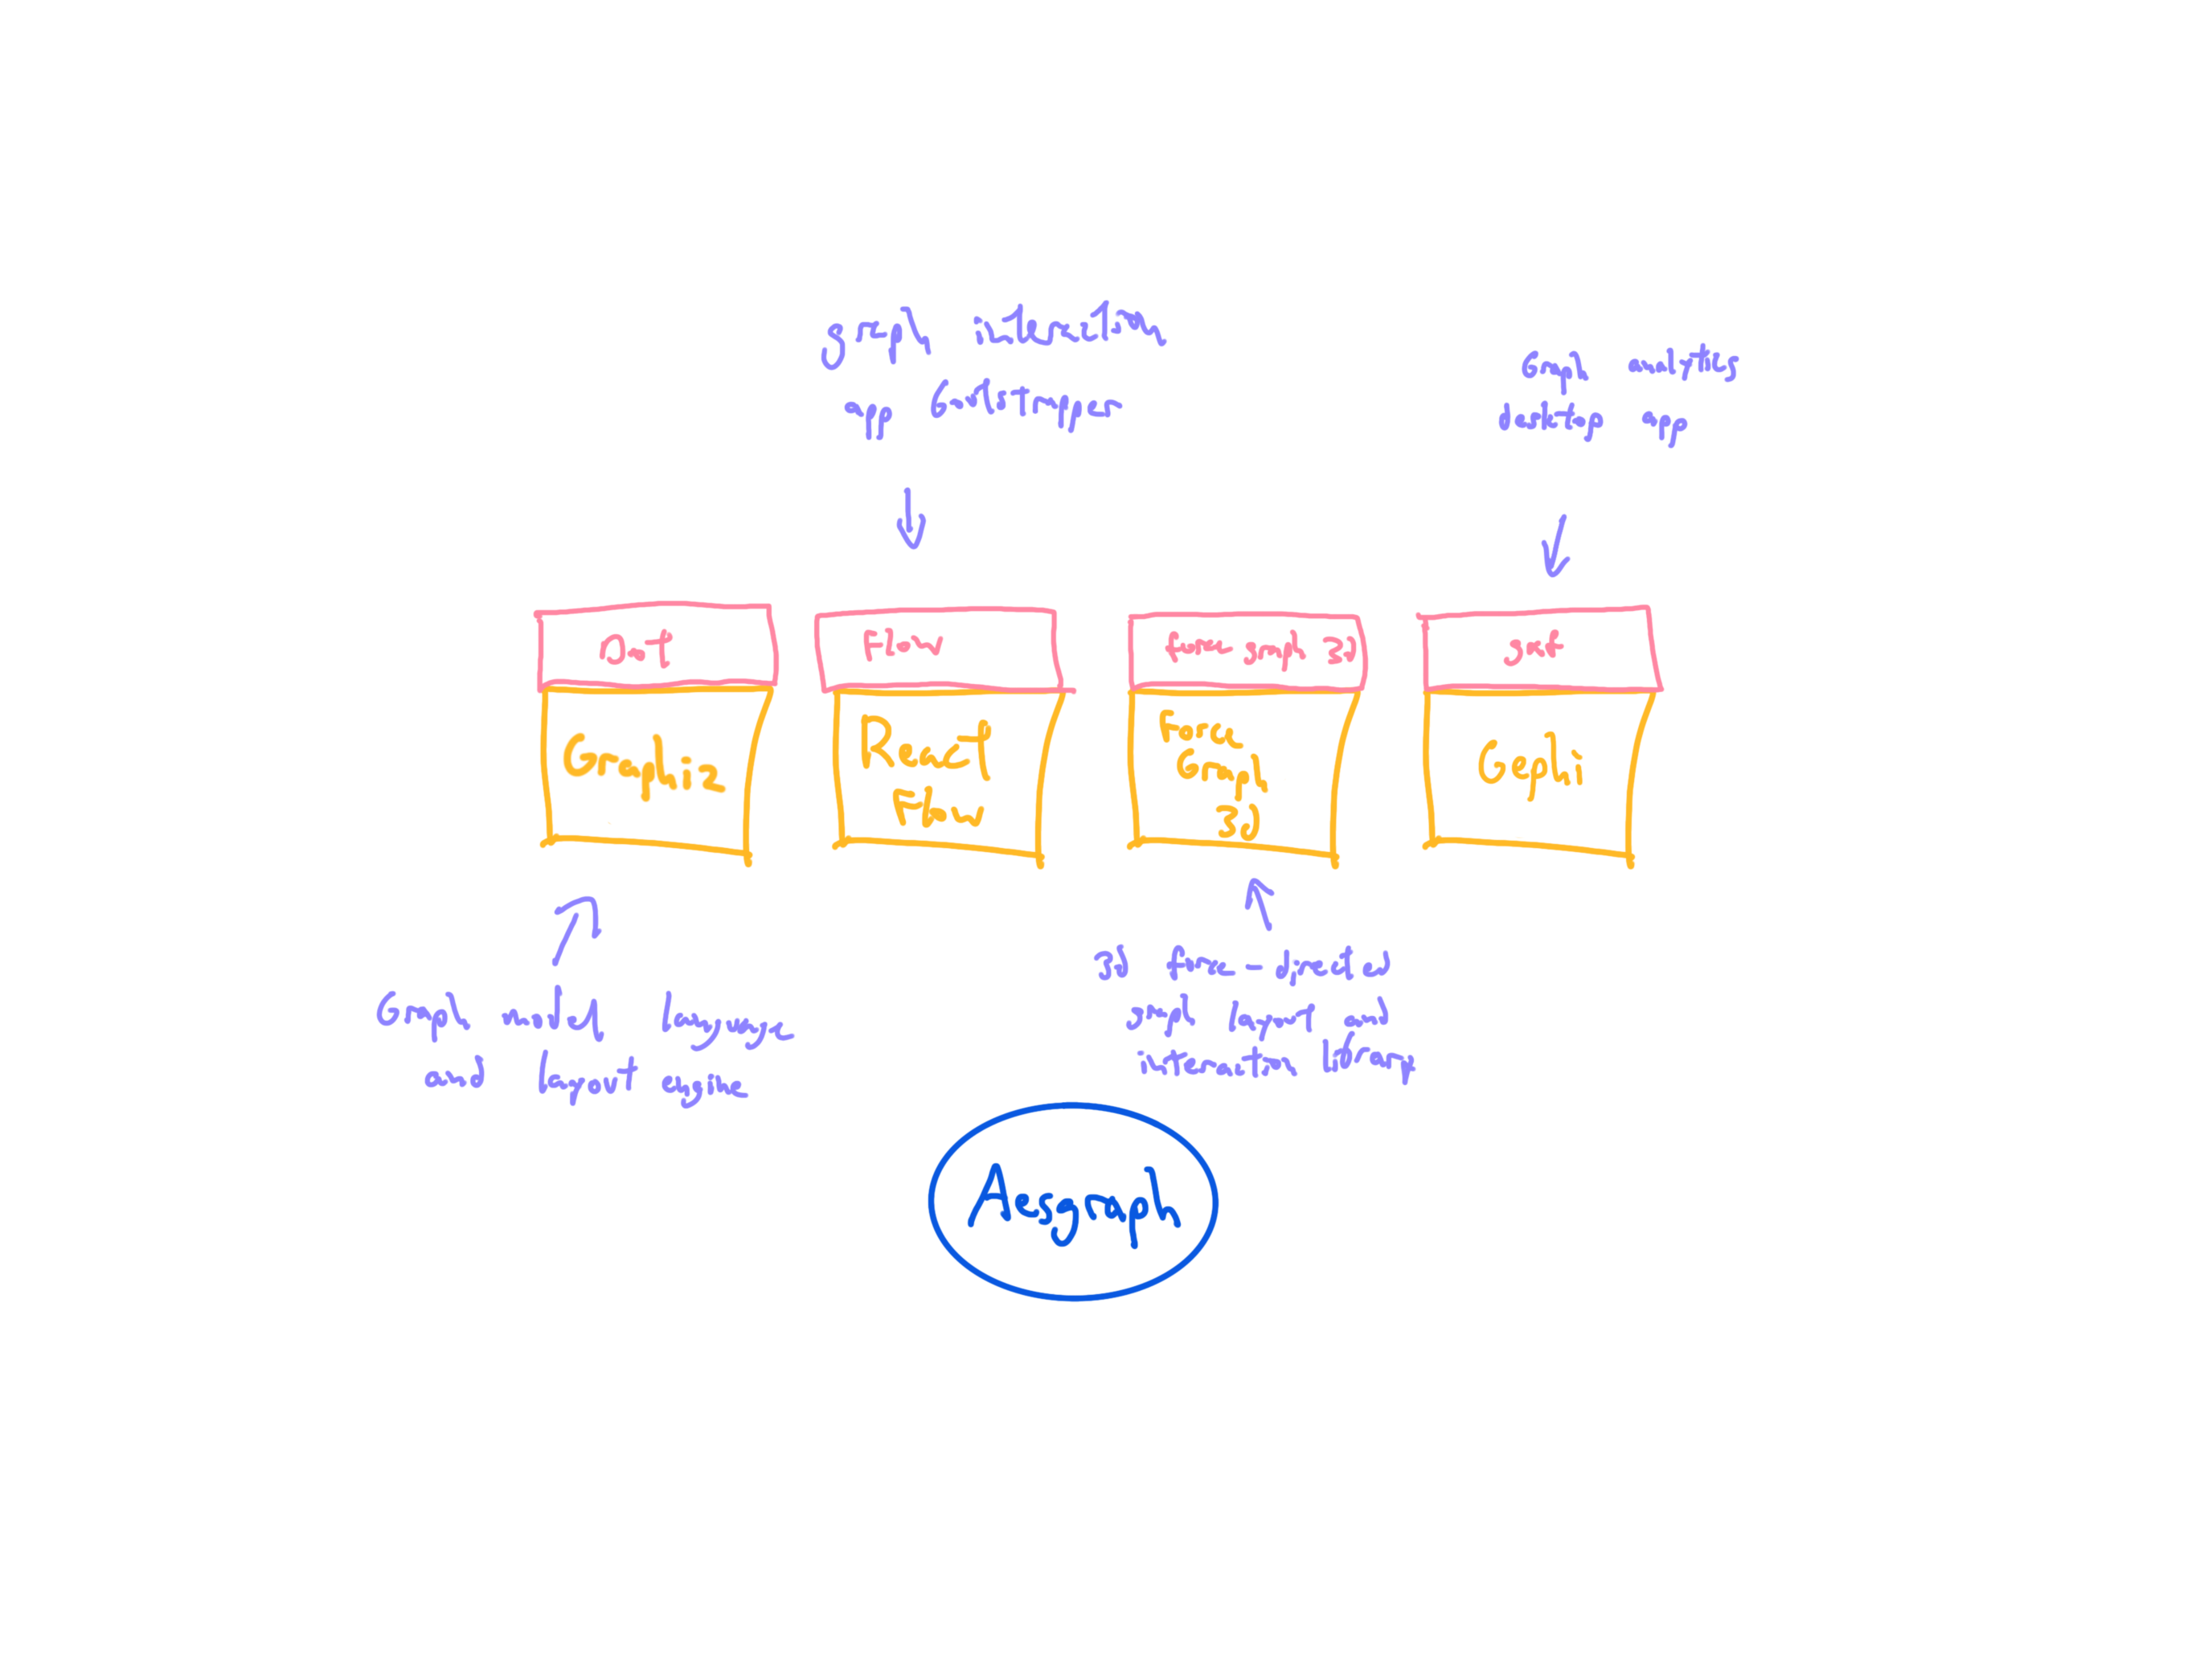 graph interaction
app bootstrapper
Graph analytics
desktop app
Dot
Flow
force graph 3D
gexf
Graphviz
React
Flow
Force
Graph
3D
Gephi
Graph model language
and layout engine
3D force-directed
graph layout and
interaction library
Aesgraph